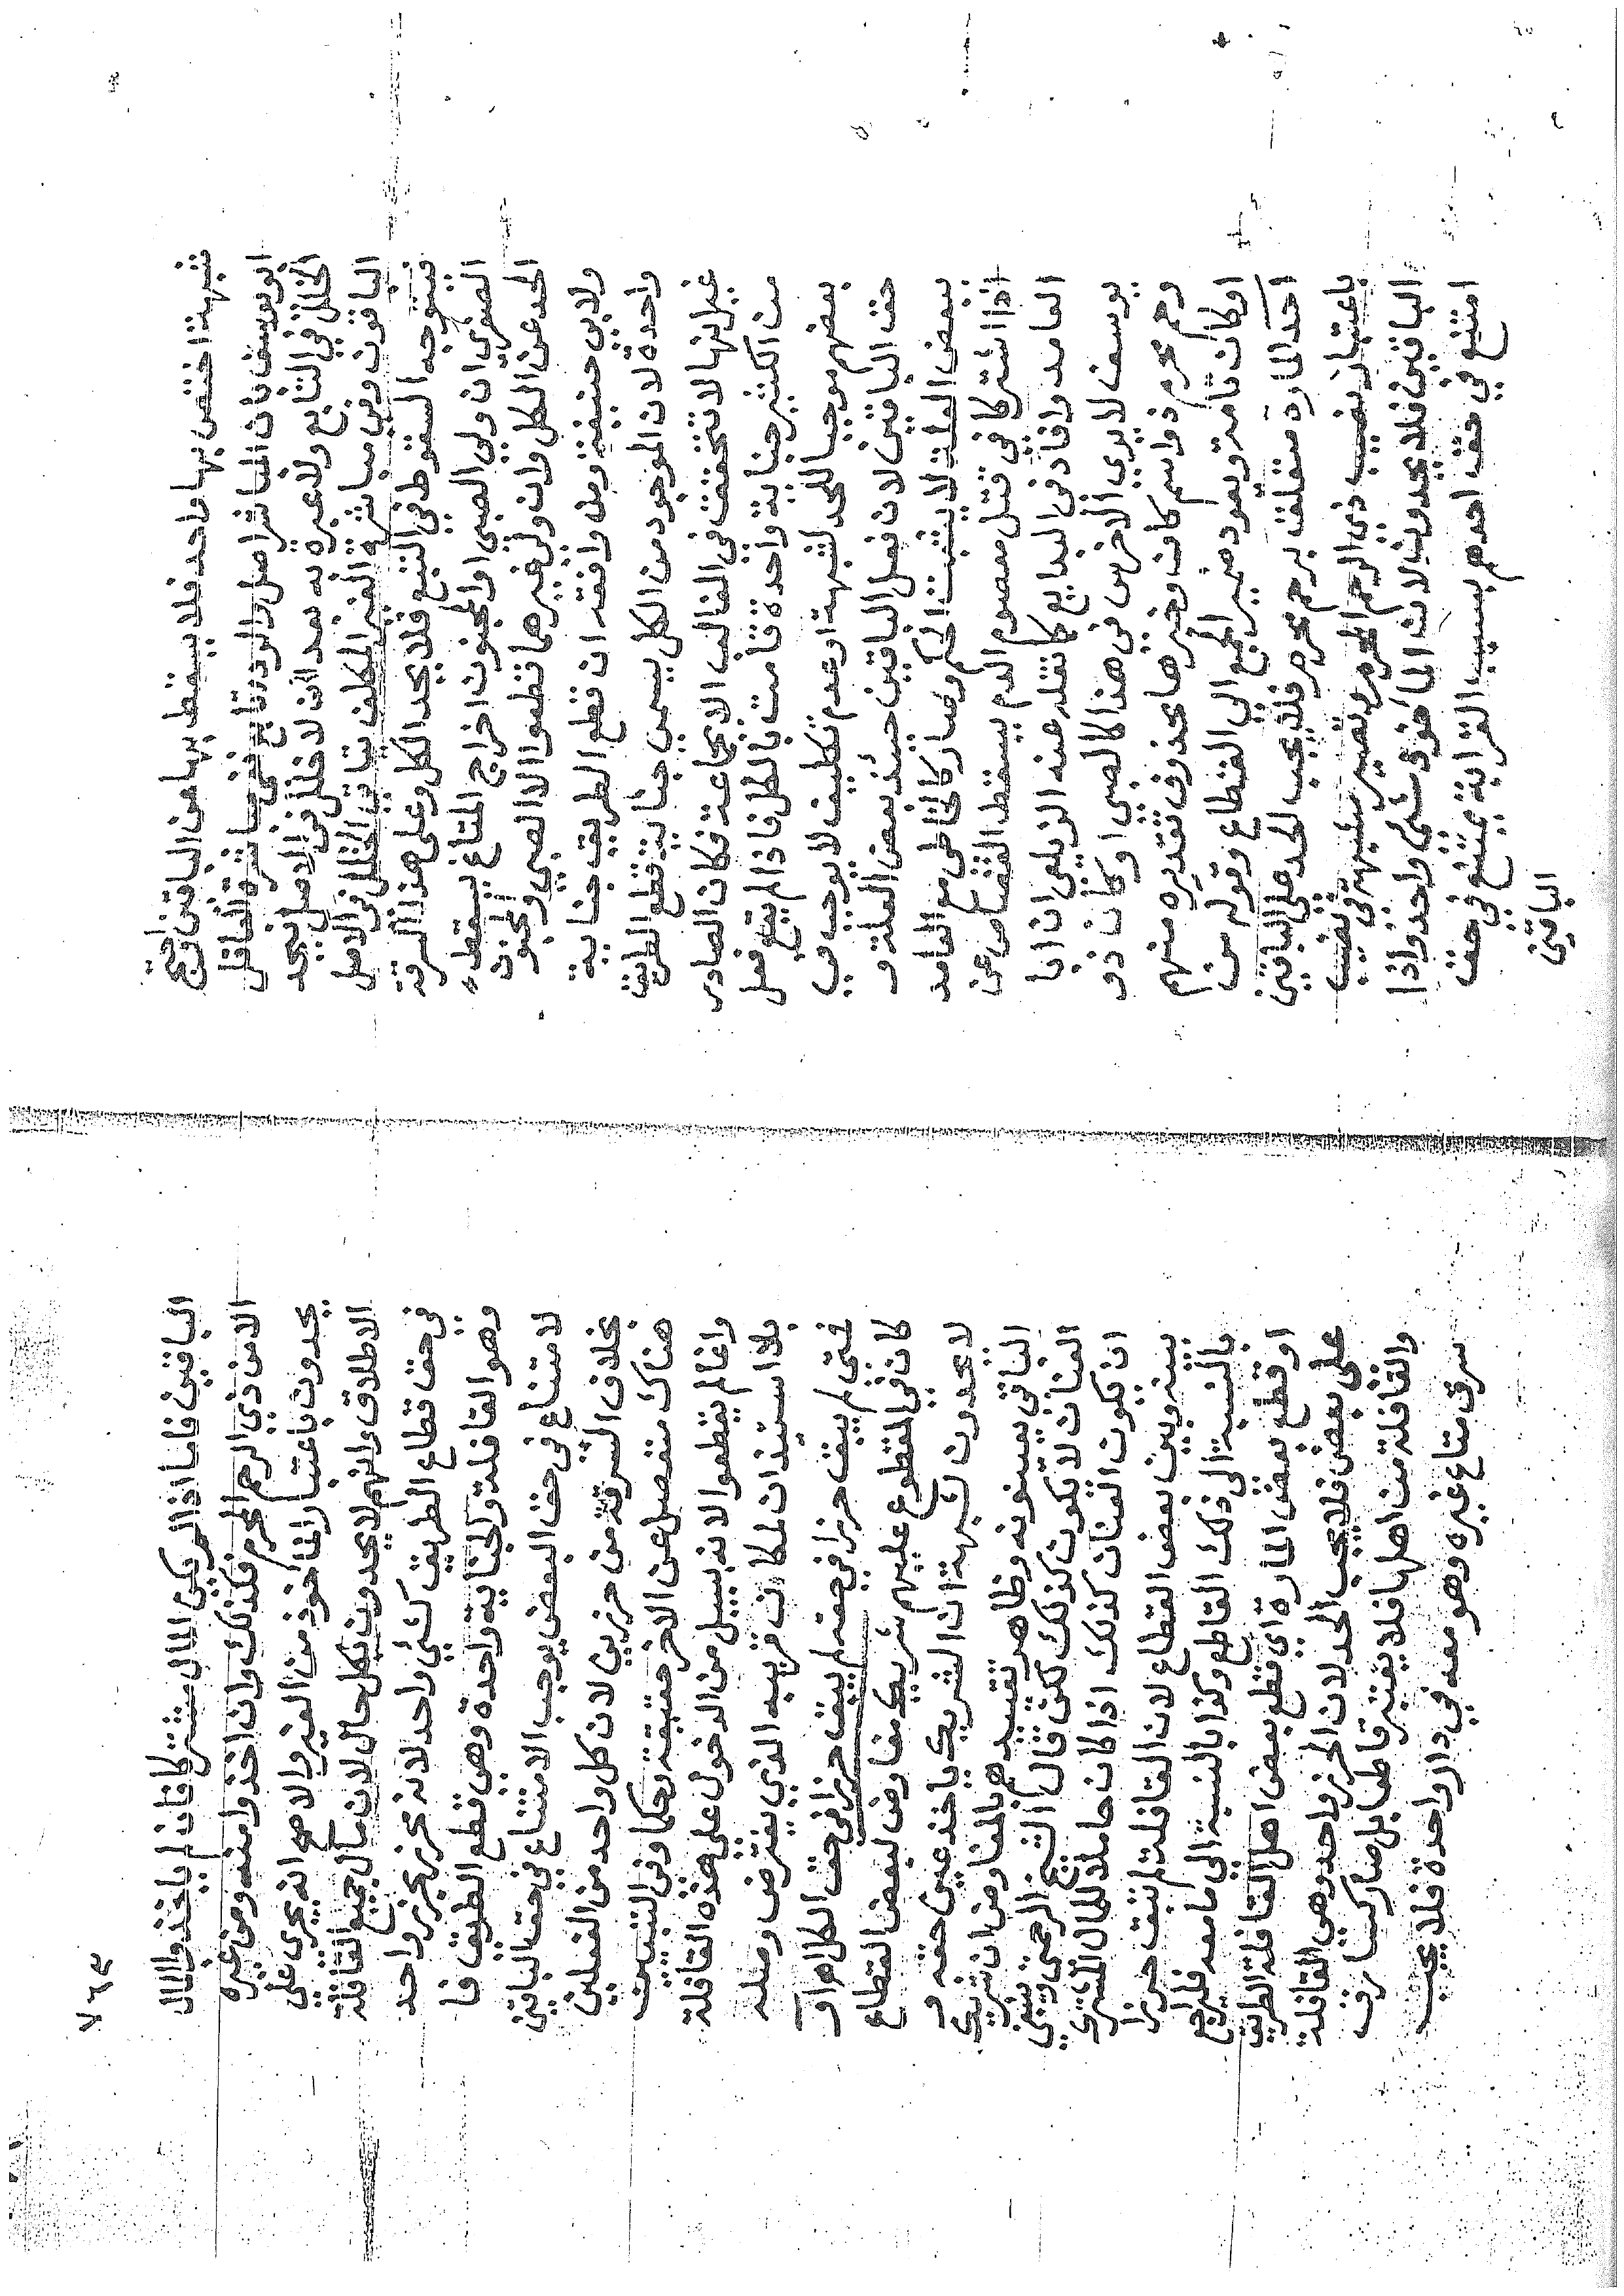 شبهة اختص بها واحد فلا يسقط بها عن الباقين واحتج
ابو يوسف بأن المباشر اصل والردء تابع ففي مباشرة العاقل
الخلل في التابع ولا عبره به بعد ان لا خلل في الاصل فيحد
الباقون وفي مباشرة الغير المكلف يتأتى الخلل في الاصل
فيتوجه السقوط في التبع فلا يحد الكل وعلى هذا السرقة
الصغرى ان ولي الصبى او المجنون اخراج المتاع يسقط
الحد عن الكل وان ولى غيرهما قطعوا الا الصبي والمجنون
ولابى حنيفة ومن وافقه ان قطع الطريق جناية
واحدة لان الموجود من الكل يسمى جناية قطع الطريق
غير انها لا تتحقق في الغالب الا بجماعة فكان الصادر
من الكثير جناية واحدة قامت بالكل فاذا لم يقع فعل
بعضهم موجبا للحد لشبهة او عدم تكليف لا يوجب في
حق الباقين لان فعل الباقين حينئذ بعض العلة و
ببعض العلة لا يثبت الحكم وصار كالخاطى مع العامد
اذا اشتركا في قتل معصوم الدم يسقط القصاص عن
العامد وافاد في البدايع كما نقله عنه الزيلعى ان ابا
يوسف لا يرى الاخرس في هذا كالصبى او كان ذو
رحم محرم ذو اسم كان وخبرها محذوف تقديره منهم
او كان تامة ويعود ضمير الجمع الى القطاع وقوله من
احد المارة متعلق برحم محرم فلا يجب الحد على الباقين
باعتبار نصيب ذى الرحم المحرم وتصير شبهة في نصيب
الباقين فلا يحدون لان الماخوذ شئ واحد واذا
امتنع في حق احدهم بسبب القرابة يمتنع في حق
الباقين
٧٦٣
الباقين فاما اذا لم يكن المال مشتركا فان لم ياخذوا المال
الا من ذي الرحم المحرم فكذلك وان اخذوا منه ومن غيره
يحدون باعتبار الماخوذ من الغير والاصح انه يجرى على
الاطلاق وانهم لا يحدون بكل حال لان مال جميع القافلة
في حق قطاع الطريق كشئ واحد لانه محرز بحرز واحد
وهو القافلة والجناية واحدة وهى قطع الطريق فا
لامتناع في حق البعض يوجب الامتناع في حق الباقين
بخلاف السرقة من حرزين لان كل واحد من الفعلين
هناك منفصل عن الاخر حقيقة وحكما وفي التبيين
وانما لم يقطعوا لانه بسبيل من الدخول على هذه القافلة
بلا استيذان لمكان قريبه الذي يفترض وصله
فمتى لم يبق حرزا في حقه لم يبق حرزا في حق الكل اهـ او
كان في المقطوع عليهم شريك مفاوض لبعض القطاع
لا يحدون لشبهة ان الشريك ياخذ عين حقه و
الباقى يعينونه وظاهر تقييدهم بالمفاوض ان شريك
العنان لا يكون كذلك لكن قال الشيخ الرحمتى وينبغي
ان يكون العنان كذلك اذا كان حاملا للمال المشترك
بينه وبين بعض القطاع لان القافلة لم تبق حرزا
بالنسبة الى ذلك القاطع وكذا بالنسبة الى ما معه فليراجع
او قطع بعض المارة اى قطع بعض اهل القافلة الطريق
على بعض فلا يجب الحد لان الحرز واحد وهى القافلة
والقافلة من اصلها فلا يعتبر قاطعا بل صار كسارق
سرق متاع غيره وهو معه في دار واحدة فلا يجب